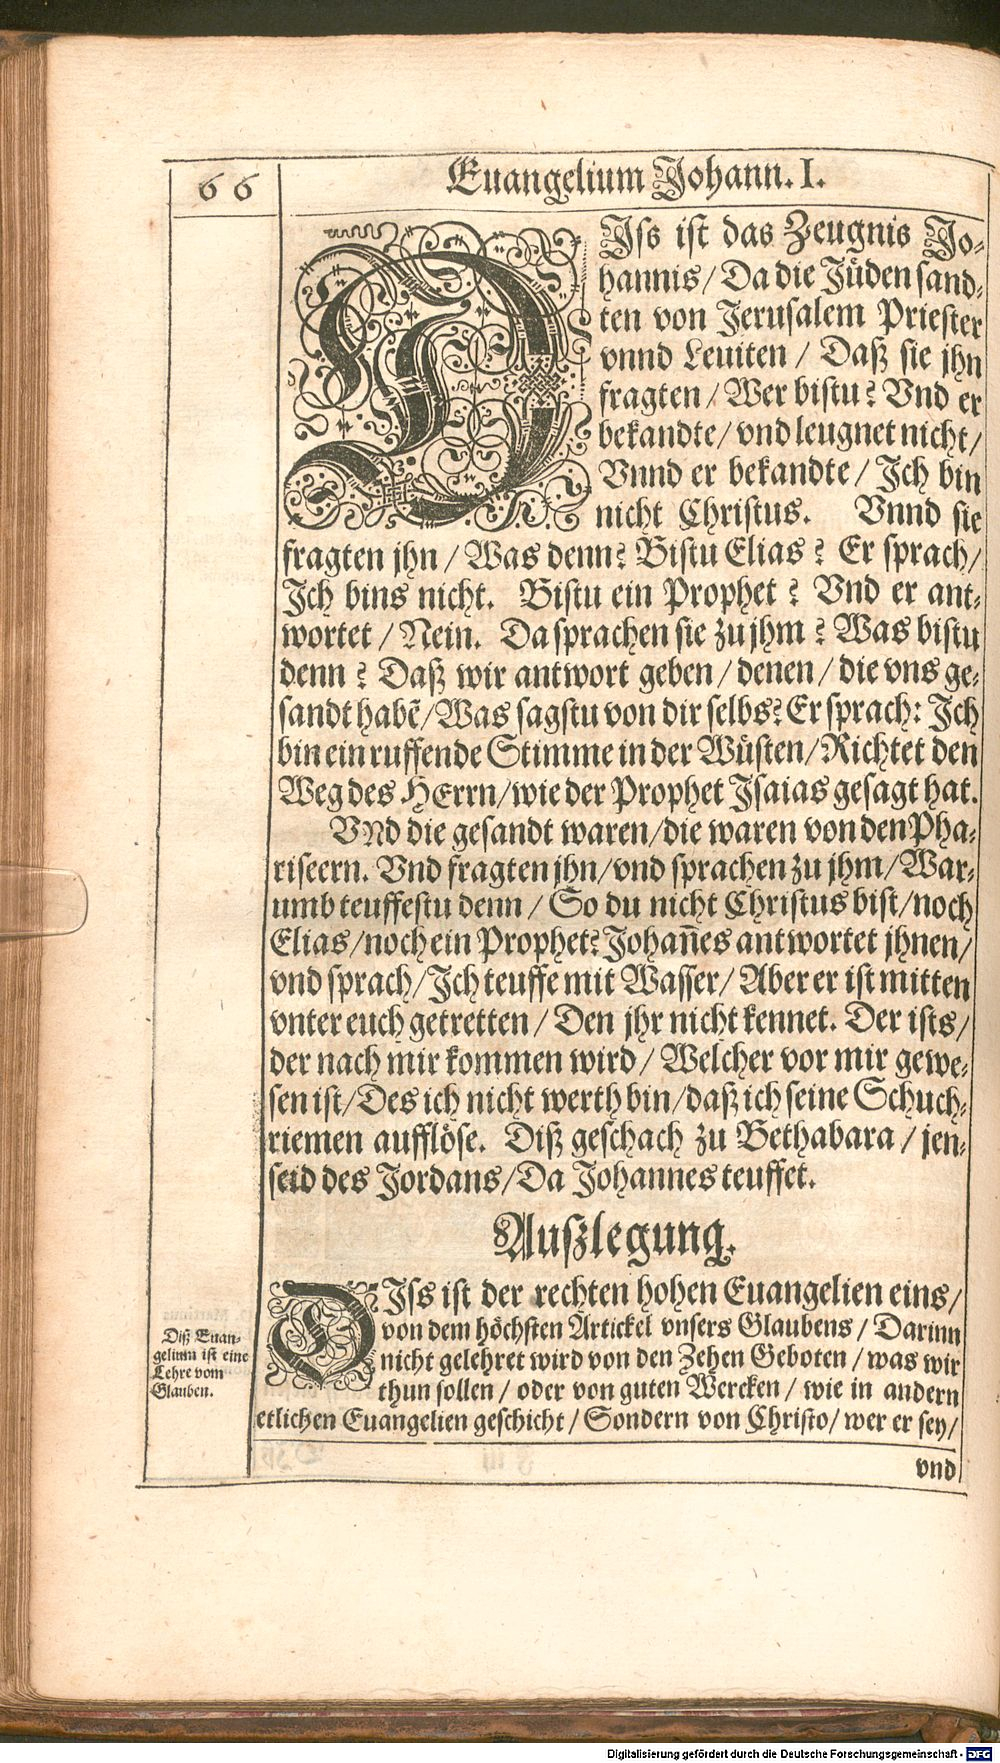 66
Euangelium Johann. I.
DJss ist das Zeugnis Jo-
hannis/ Da die Jüden sand-
ten von Jerusalem Priester
vnnd Leuiten / Daß sie jhn
fragten / Wer bistu? Vnd er
bekandte/ vnd leugnet nicht/
Vnnd er bekandte/ Jch bin
nicht Christus. Vnnd sie
fragten jhn / Was denn? Bistu Elias? Er sprach/
Jch bins nicht. Bistu ein Prophet? Vnd er ant-
wortet / Nein. Da sprachen sie zu jhm? Was bistu
denn? Daß wir antwort geben/ denen/ die vns ge-
sandt habẽ/ Was sagstu von dir selbs? Er sprach: Jch
bin ein ruffende Stimme in der Wüsten/ Richtet den
Weg des HErrn/ wie der Prophet Jsaias gesagt hat.
VNd die gesandt waren/ die waren von den Pha-
riseern. Vnd fragten jhn/ vnd sprachen zu jhm/ War-
umb teuffestu denn / So du nicht Christus bist/ noch
Elias/ noch ein Prophet? Johañes antwortet jhnen/
vnd sprach/ Jch teuffe mit Wasser/ Aber er ist mitten
vnter euch getretten / Den jhr nicht kennet. Der ists/
der nach mir kommen wird/ Welcher vor mir gewe-
sen ist/ Des ich nicht werth bin/ daß ich seine Schuch-
riemen aufflöse. Diß geschach zu Bethabara / jen-
seid des Jordans/ Da Johannes teuffet.
Außlegung.
DJss ist der rechten hohen Euangelien eins/
von dem höchsten Artickel vnsers Glaubens / Darinn
nicht gelehret wird von den Zehen Geboten / was wir
thun sollen / oder von guten Wercken / wie in andern
etlichen Euangelien geschicht / Sondern von Christo/ wer er sey/
Diß Euan-
gelium ist eine
Lehre vom
Glauben.
vnd
Digitalisierung gefördert durch die Deutsche Forschungsgemeinschaft - DFG